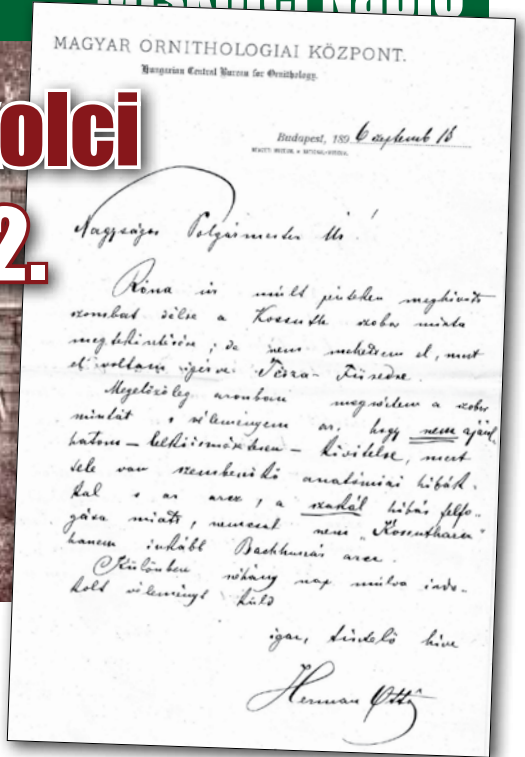 Miskolci Napló
olci
2.
MAGYAR ORNITHOLOGIAI KÖZPONT.
Hungarian Central Bureau for Ornithology.
Budapest, 189 6 septemb 18
Nagyságos Polgármester Úr!
Róna úr múlt pénteken meghívott
szombat délre a Kossuth szobor minta
megtekintésére; de nem mehettem el, mert
el voltam ígérve Tisza-Füredre.
Megelőzőleg azonban megnéztem a szobor
mintát s véleményem az, hogy nem ajánl
hatom – lelkiismeretesen – kivitelre, mert
tele van szembeötlő anatómiai hibák-
kal s az arcz, a szakál hibás felfo-
gása miatt, nemcsak nem „Kossutharcz"
hanem inkább Bachhusás arcz.
Különben néhány nap múlva indo-
kolt véleményt küld
igaz, tisztelő híve
Herman Ottó